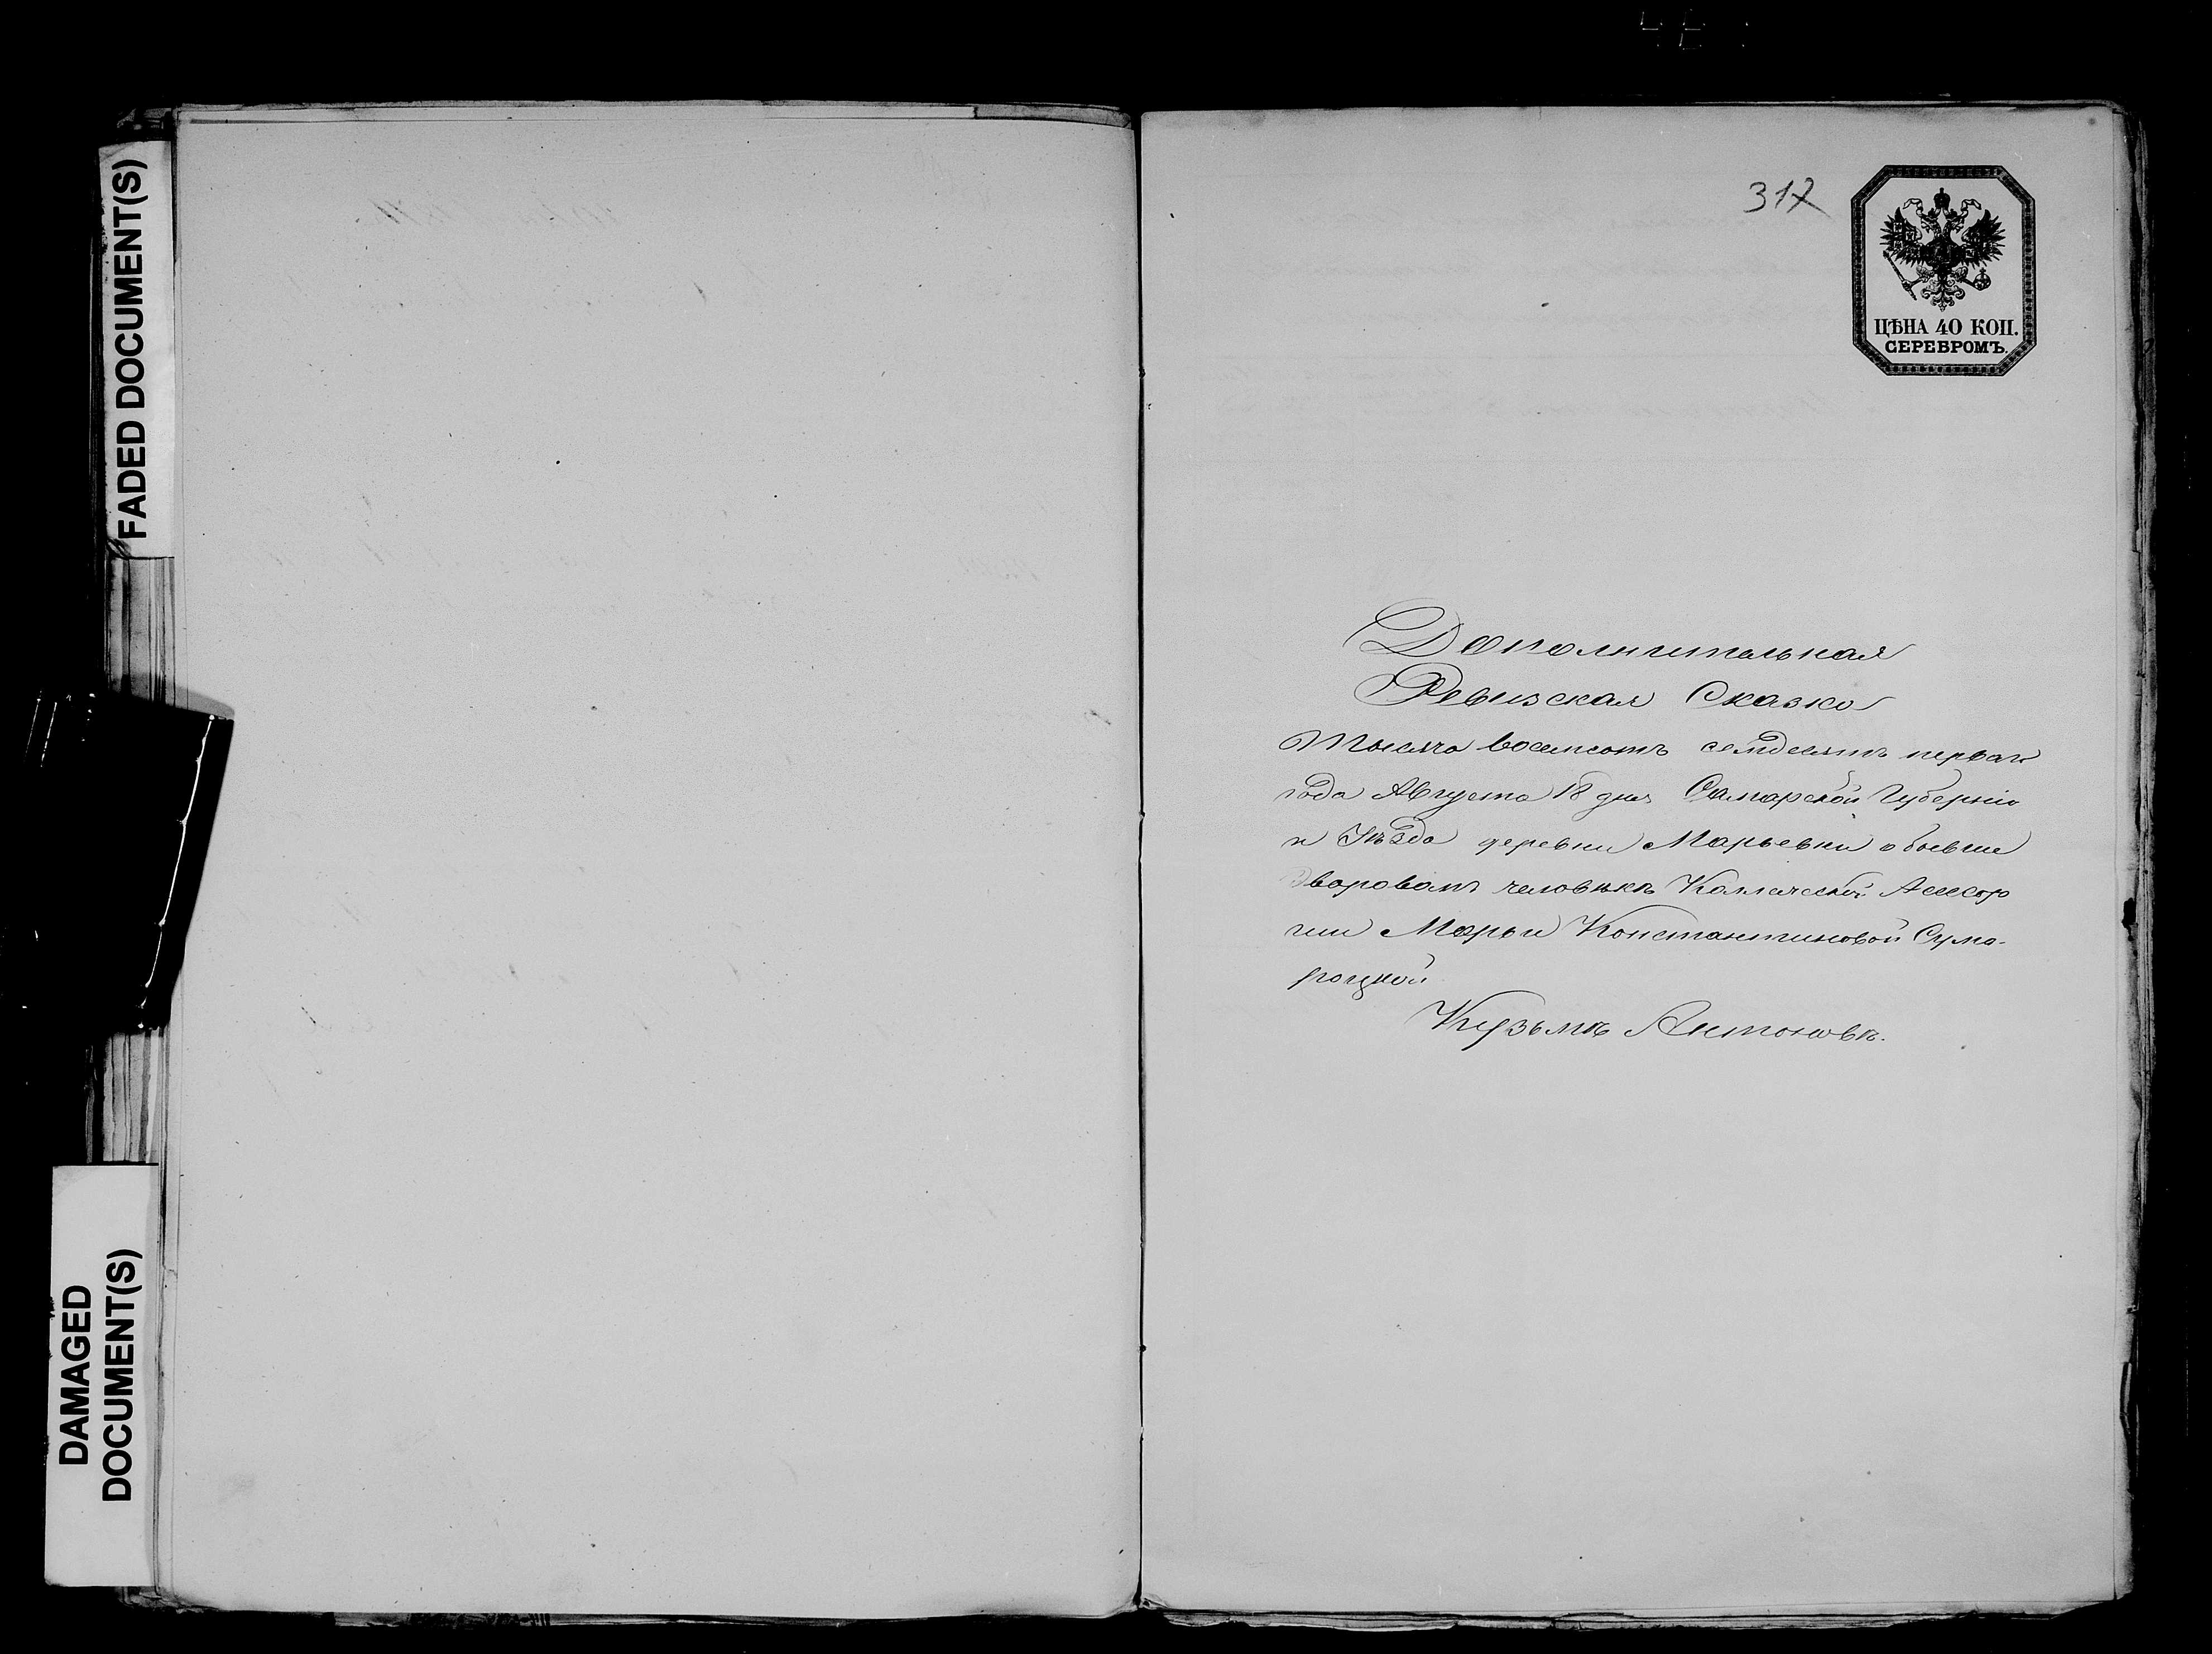 FADED DOCUMENT(S)
DAMAGED
DOCUMENT(S)
317
ЦѢНА 40 КОП.
СЕРЕБРОМЪ.
Дополнительная
Ревизская Сказка
Тысяча восемсотъ семдесятъ перваго
года Августа 18 дня Самарской Губерніи
и Уѣзда деревни Марьевки о бывше
дворовомъ человѣкѣ Коллежской Асессор
ши Марьи Константиновой Сума-
роцкой
Кузьмѣ Антоновѣ.